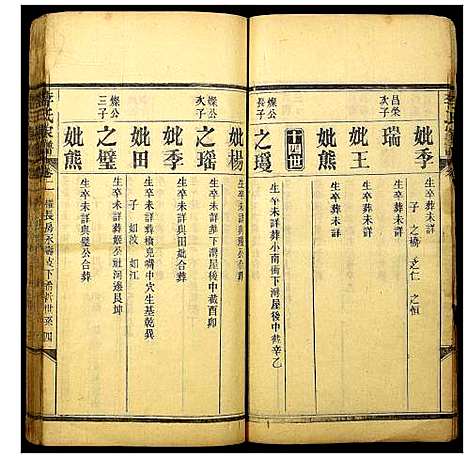 妣季
生卒葬未詳
子 之橋 之仁 之恒
昌榮次子
瑞
生卒葬未詳
妣王
生卒葬未詳
妣熊
生卒葬未詳
十四世
燦公長子
之瓊
生卒未詳葬小南衝下灣屋後中截辛乙
妣楊
生卒葬未詳
燦公次子
之瑤
生卒未詳葬下灣屋後中截酉卯
妣季
生卒未詳與田妣合葬
妣田
生卒未詳葬槍兒嘴中穴生基乾巽
子 如汶 如江
燦公三子
之璧
生卒未詳葬嫁公社河邊艮坤
妣熊
生卒未詳與璧公合葬
李氏家譜
卷一